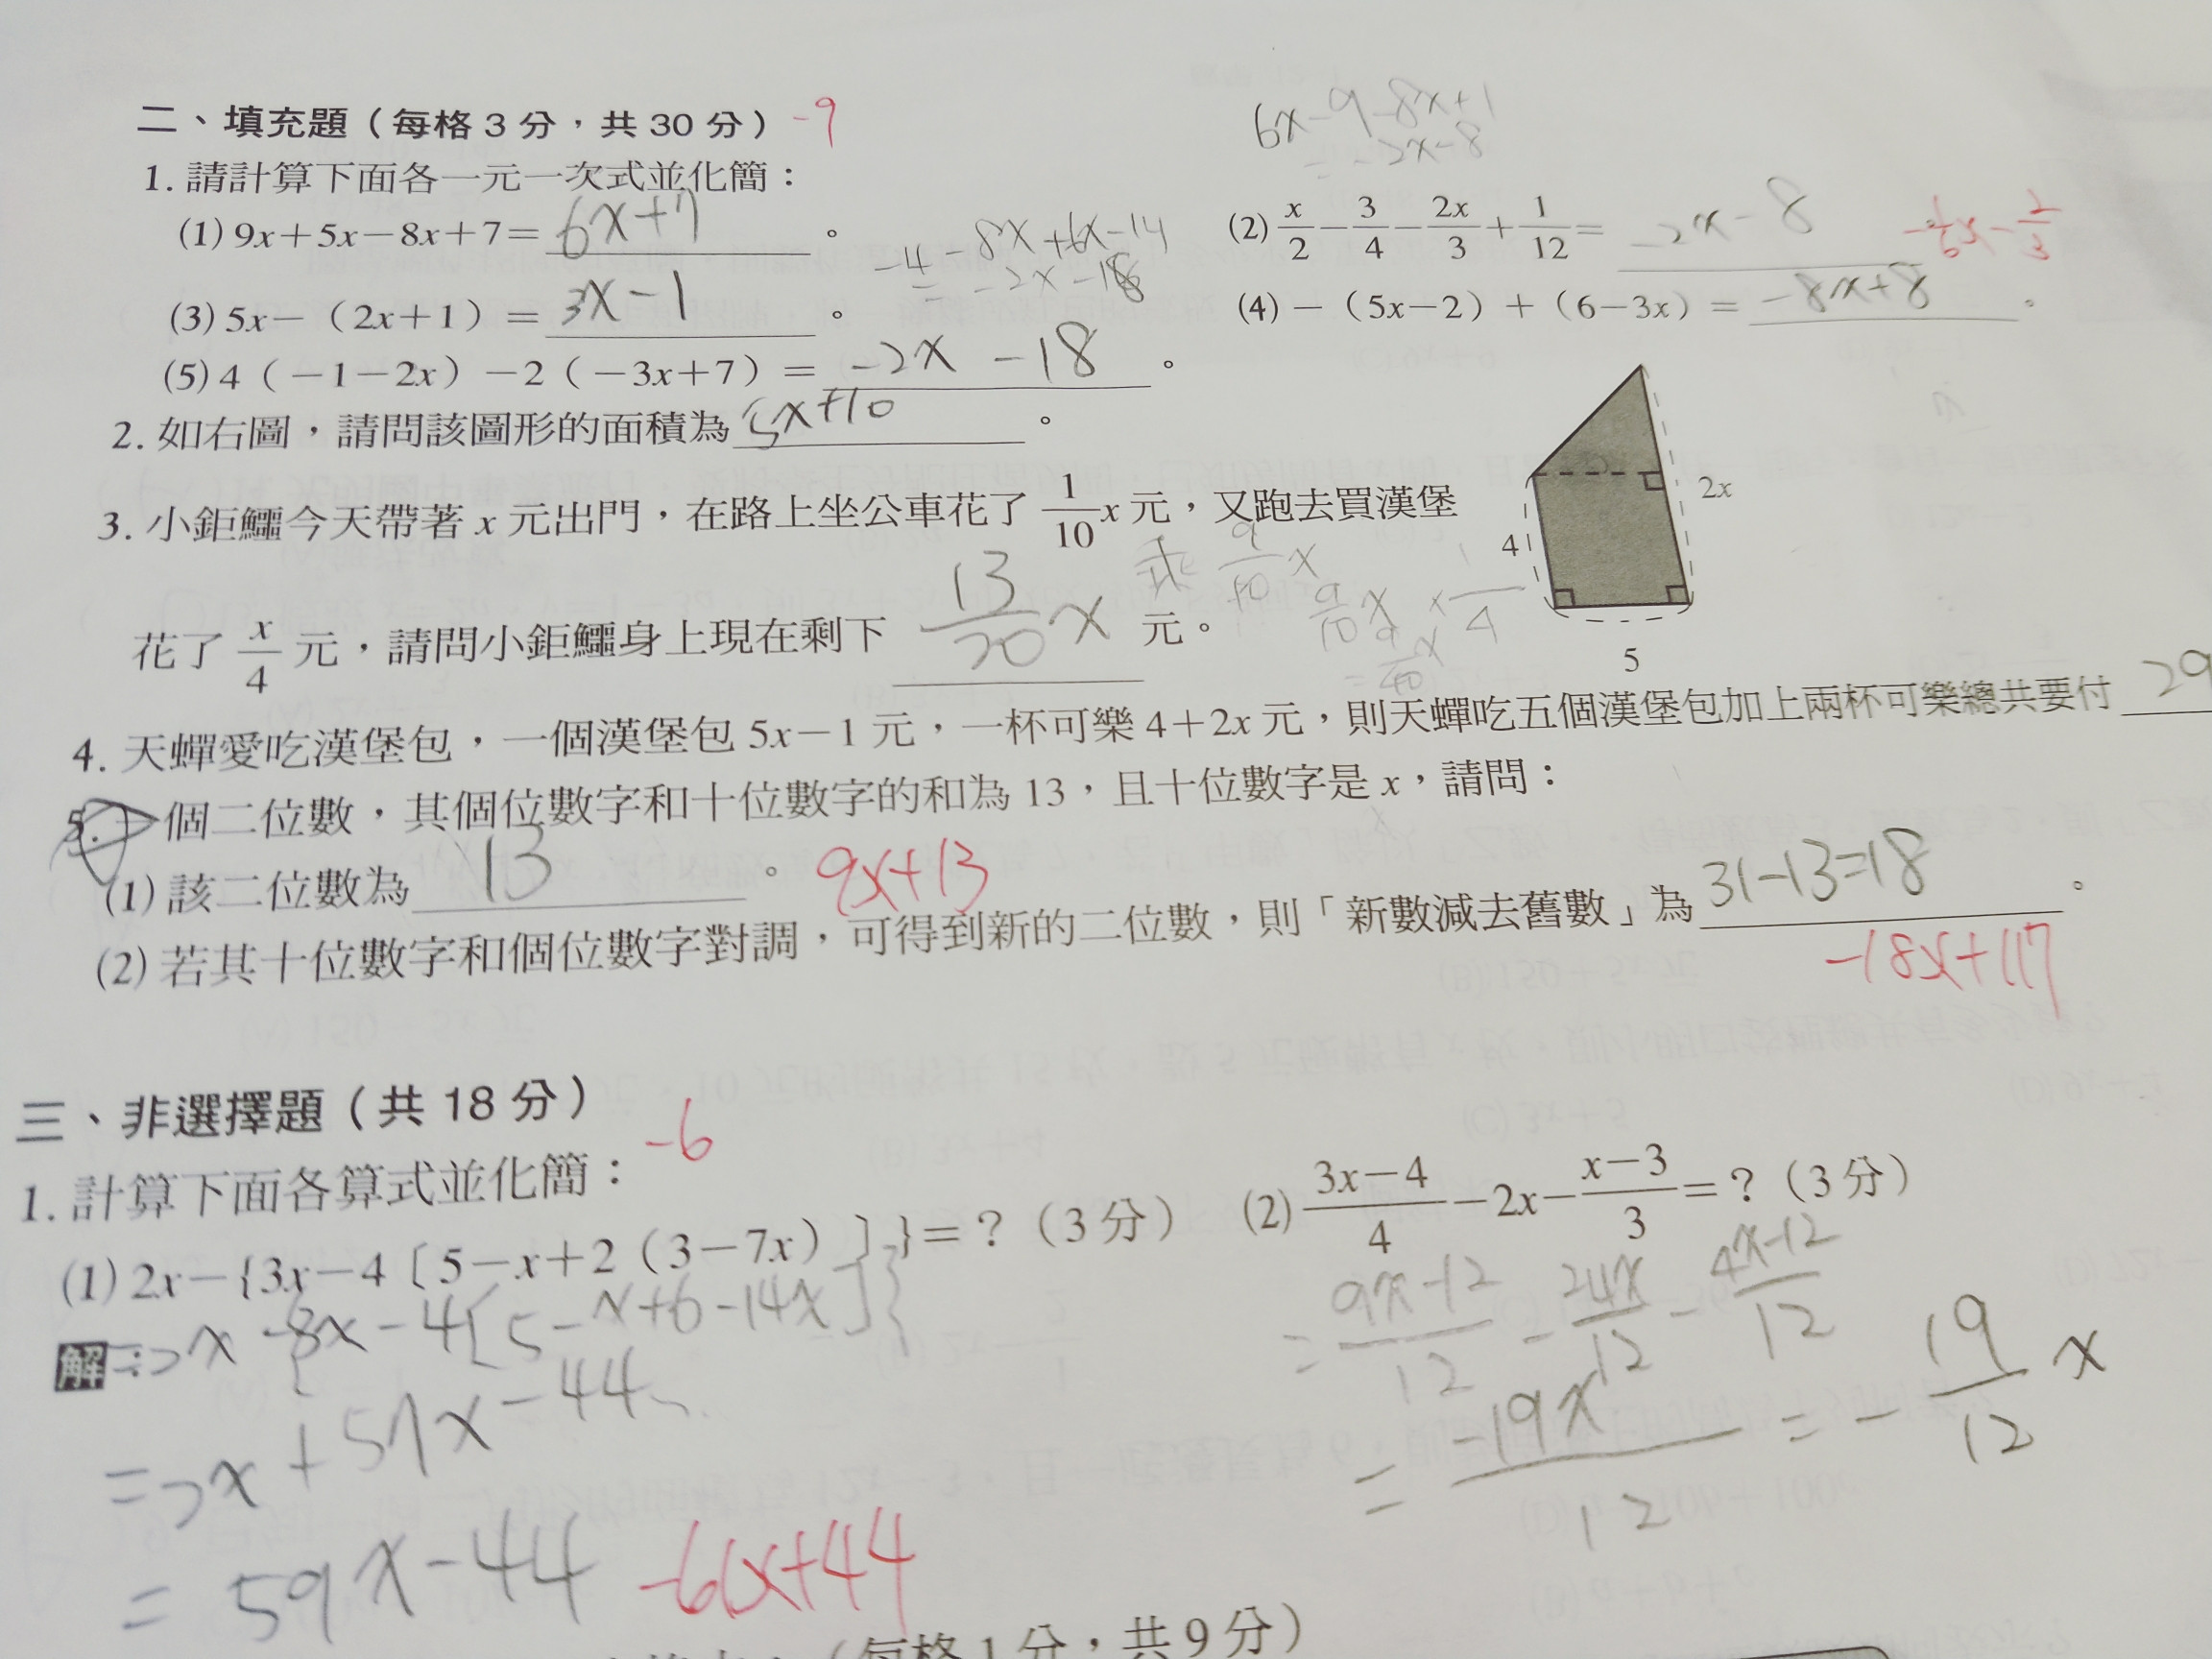 二、填充題（每格 3 分，共 30 分） -9
6x-9-8x+1
= -2x-8
1. 請計算下面各一元一次式並化簡：
(1) 9x+5x-8x+7= 6x+7 。
(2) x/2 - 3/4 - 2x/3 + 1/12 = -2x-8 -1/6x-2/3
-4-8x+6x-14
= -2x-18
(3) 5x-（2x+1）= 3x-1 。
(4) -（5x-2）+（6-3x）= -8x+8 。
(5) 4（-1-2x）-2（-3x+7）= -2x-18 。
2. 如右圖，請問該圖形的面積為 5x+10 。
2x
4
5
3. 小鉅鱷今天帶著 x 元出門，在路上坐公車花了 1/10 x 元，又跑去買漢堡
花了 x/4 元，請問小鉅鱷身上現在剩下 13/20 x 元。
9/10 x
9/10 x × 1/4
= 9/40 x
4. 天蟬愛吃漢堡包，一個漢堡包 5x-1 元，一杯可樂 4+2x 元，則天蟬吃五個漢堡包加上兩杯可樂總共要付 29
5. 一個二位數，其個位數字和十位數字的和為 13，且十位數字是 x，請問：
(1) 該二位數為 13 。 9x+13
(2) 若其十位數字和個位數字對調，可得到新的二位數，則「新數減去舊數」為 31-13=18 。
-18x+117
三、非選擇題（共 18 分） -6
1. 計算下面各算式並化簡：
(1) 2x-{3x-4〔5-x+2（3-7x）〕}=？（3 分）
(2) (3x-4)/4 - 2x - (x-3)/3 =？（3 分）
解：=2x-{3x-4[5-x+6-14x]}
=2x+57x-44
=59x-44 -61x+44
= (9x-12)/12 - 24x/12 - (4x-12)/12
= -19x/12 = -19/12 x
（每格 1 分，共 9 分）